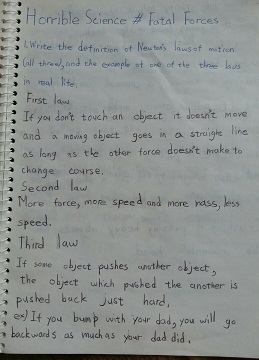 Horrible Science # Fatal Forces
1. Write the definition of Newton's laws of motion
(all three), and the example of one of the three laws
in real life.
First law
If you don't touch an object it doesn't move
and a moving object goes in a straigte line
as long as the other force doesn't make to
change course.
Second law
More force, more speed and more mass, less
speed.
Third law
If some object pushes another object,
the object which pushed the another is
pushed back just hard,
ex) If you bump with your dad, you will go
backwards as much as your dad did.